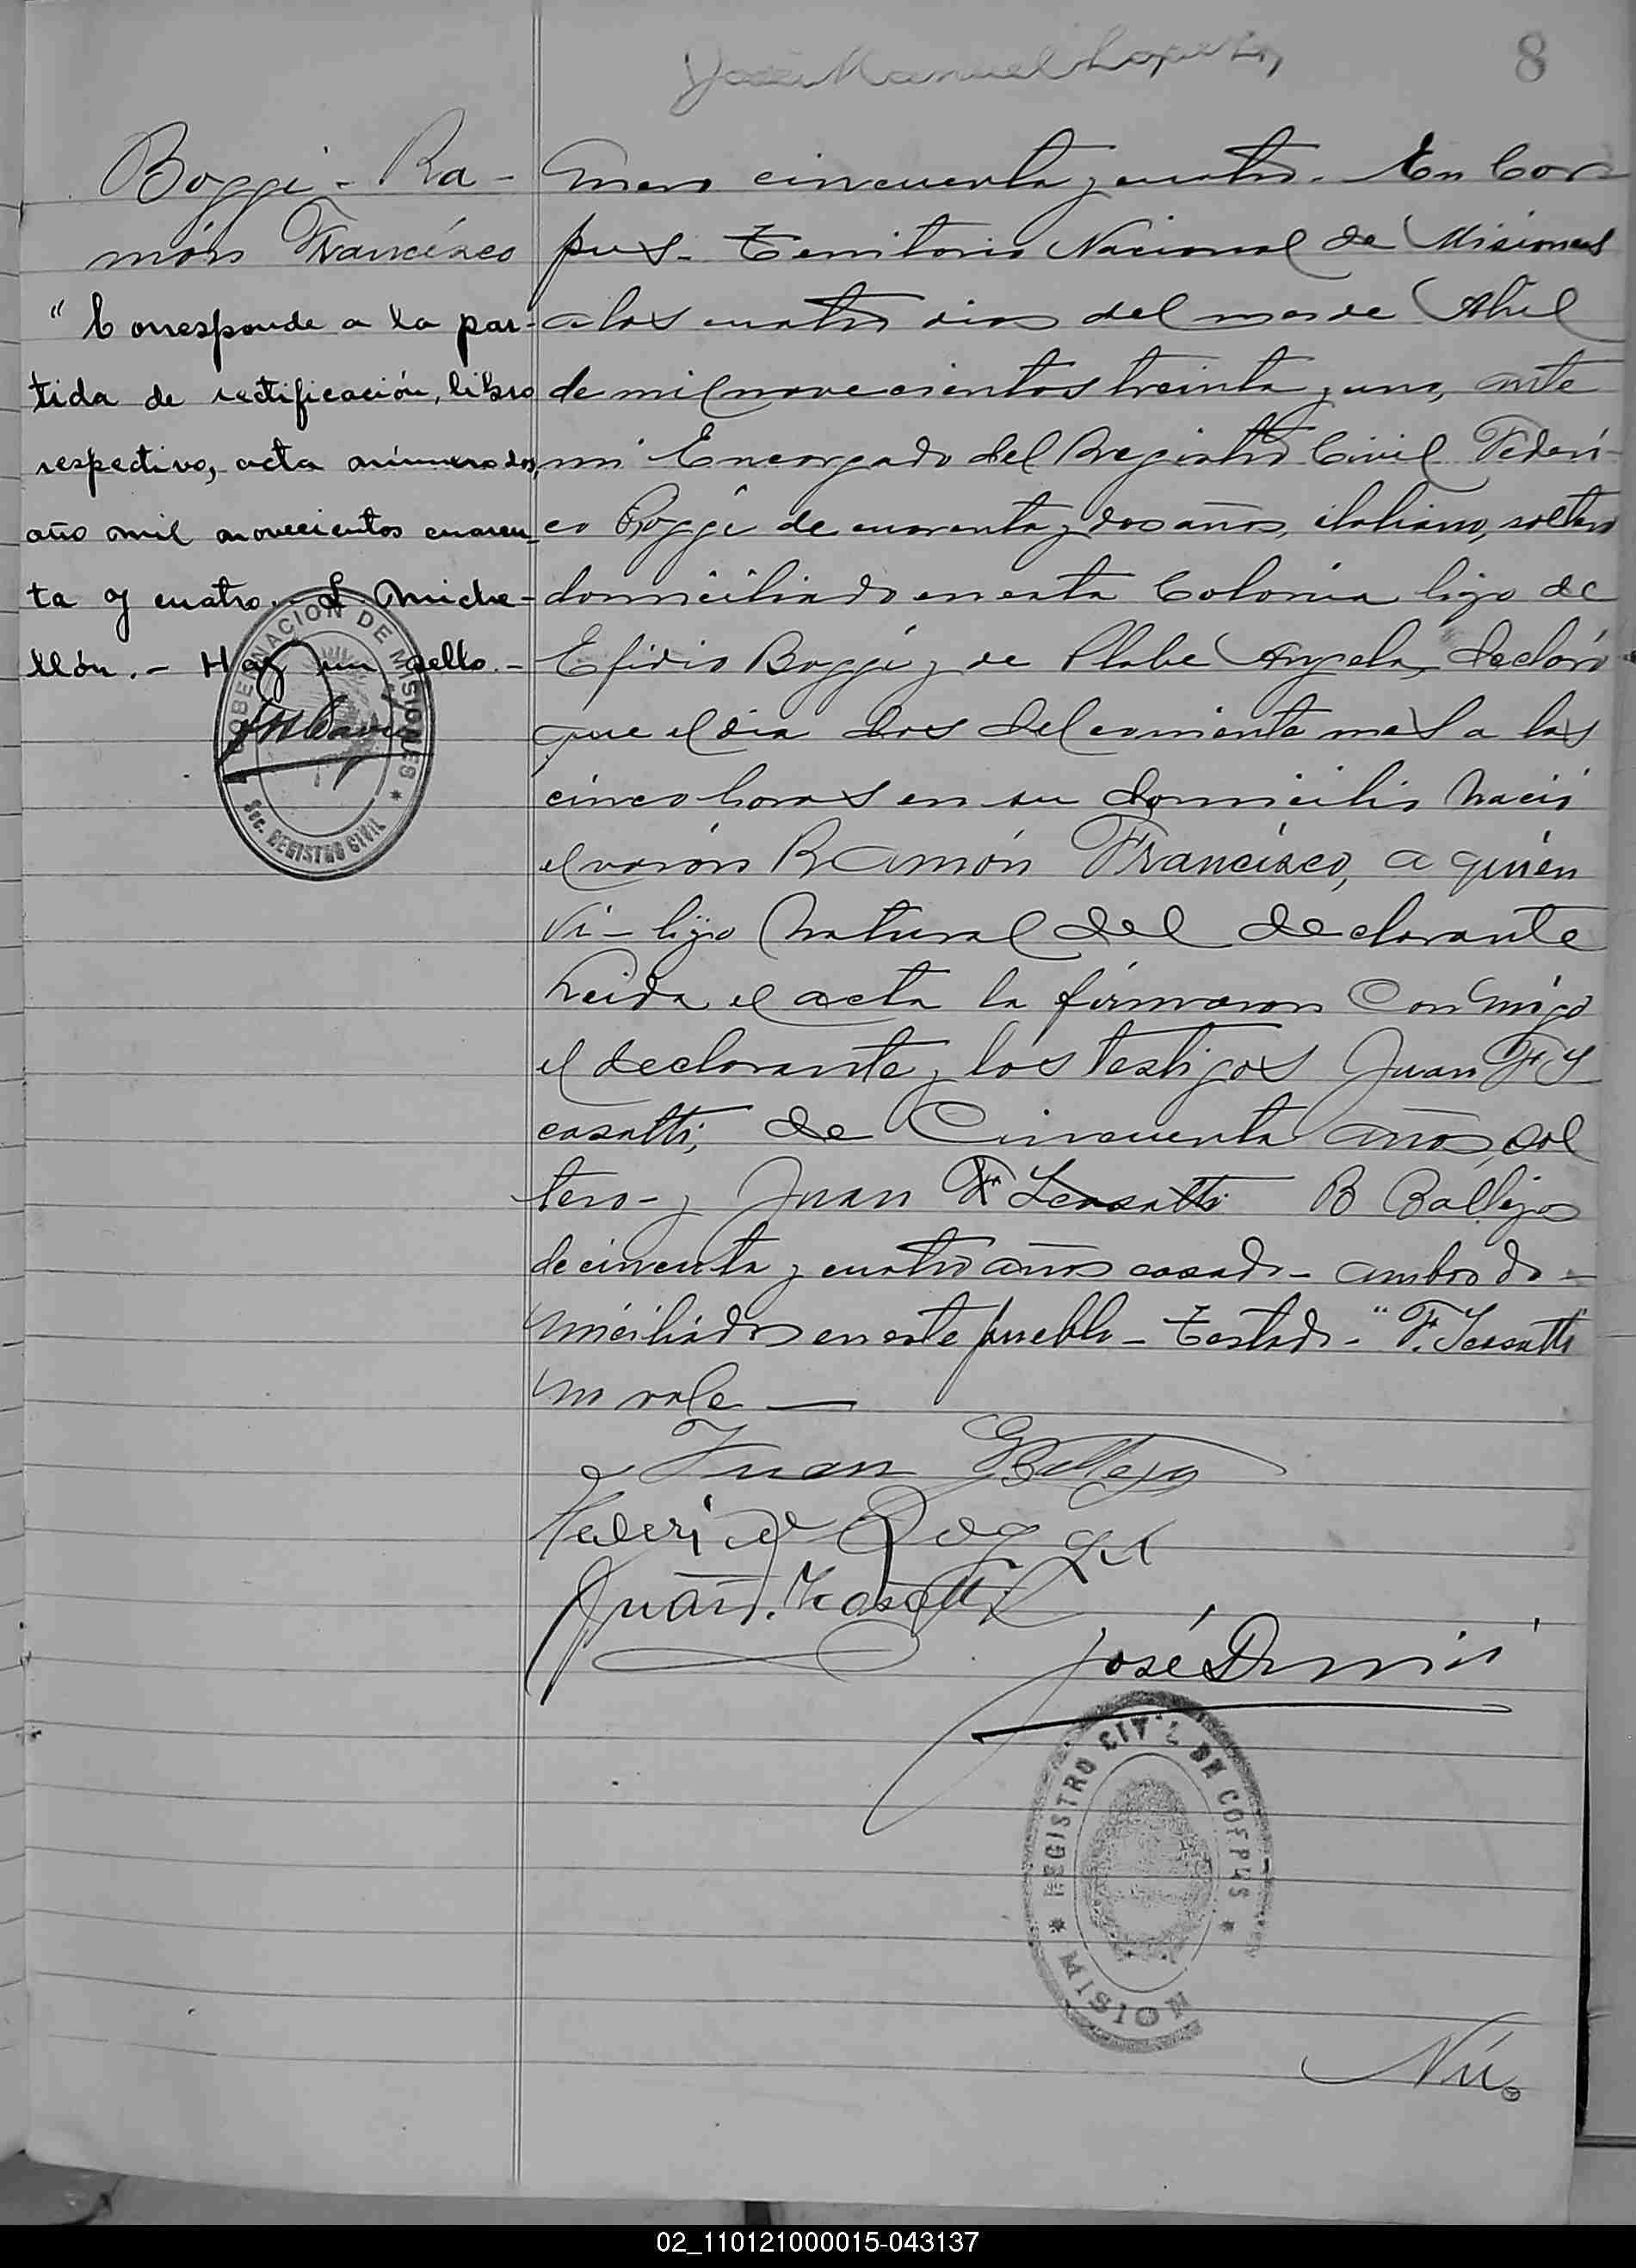 José Manuel Lopez
8
Boggi - Ra-
món Francisco
"Corresponde a la par-
tida de rectificación, libro
respectivo, acta número dos,
año mil novecientos cuaren-
ta y cuatro.- Miche-
llón.- Hay un sello.-
GOBERNACION DE MISIONES
Sec. REGISTRO CIVIL
mero cincuenta y cuatro. En Cor-
pus - Territorio Nacional de Misiones
a los cuatro dias del mes de Abril
de mil novecientos treinta y uno, ante
mi Encargado del Registro Civil Federi-
co Boggi de cuarenta y dos años, italiano, soltero
domiciliado en esta Colonia hijo de
Efidio Boggi y de Angela, declaró
que el dia dos del corriente mes a las
cinco horas en su domicilio nació
el varón Ramón Francisco, a quién
vi - hijo natural del declarante
Leida el acta la firmaron conmigo
el declarante y los testigos Juan F Y
casatti, de Cincuenta años, sol
tero - y Juan F Icasatti B Ballejos
de cincuenta y cuatro años casado - ambos do-
miciliados en este pueblo - Testado - "F. Icasatti"
no vale —
Juan Ballejos
Federico Boggi
Juan. Icasatti
José
REGISTRO CIVIL DE CORPUS
MISION
Nú
02_110121000015-043137